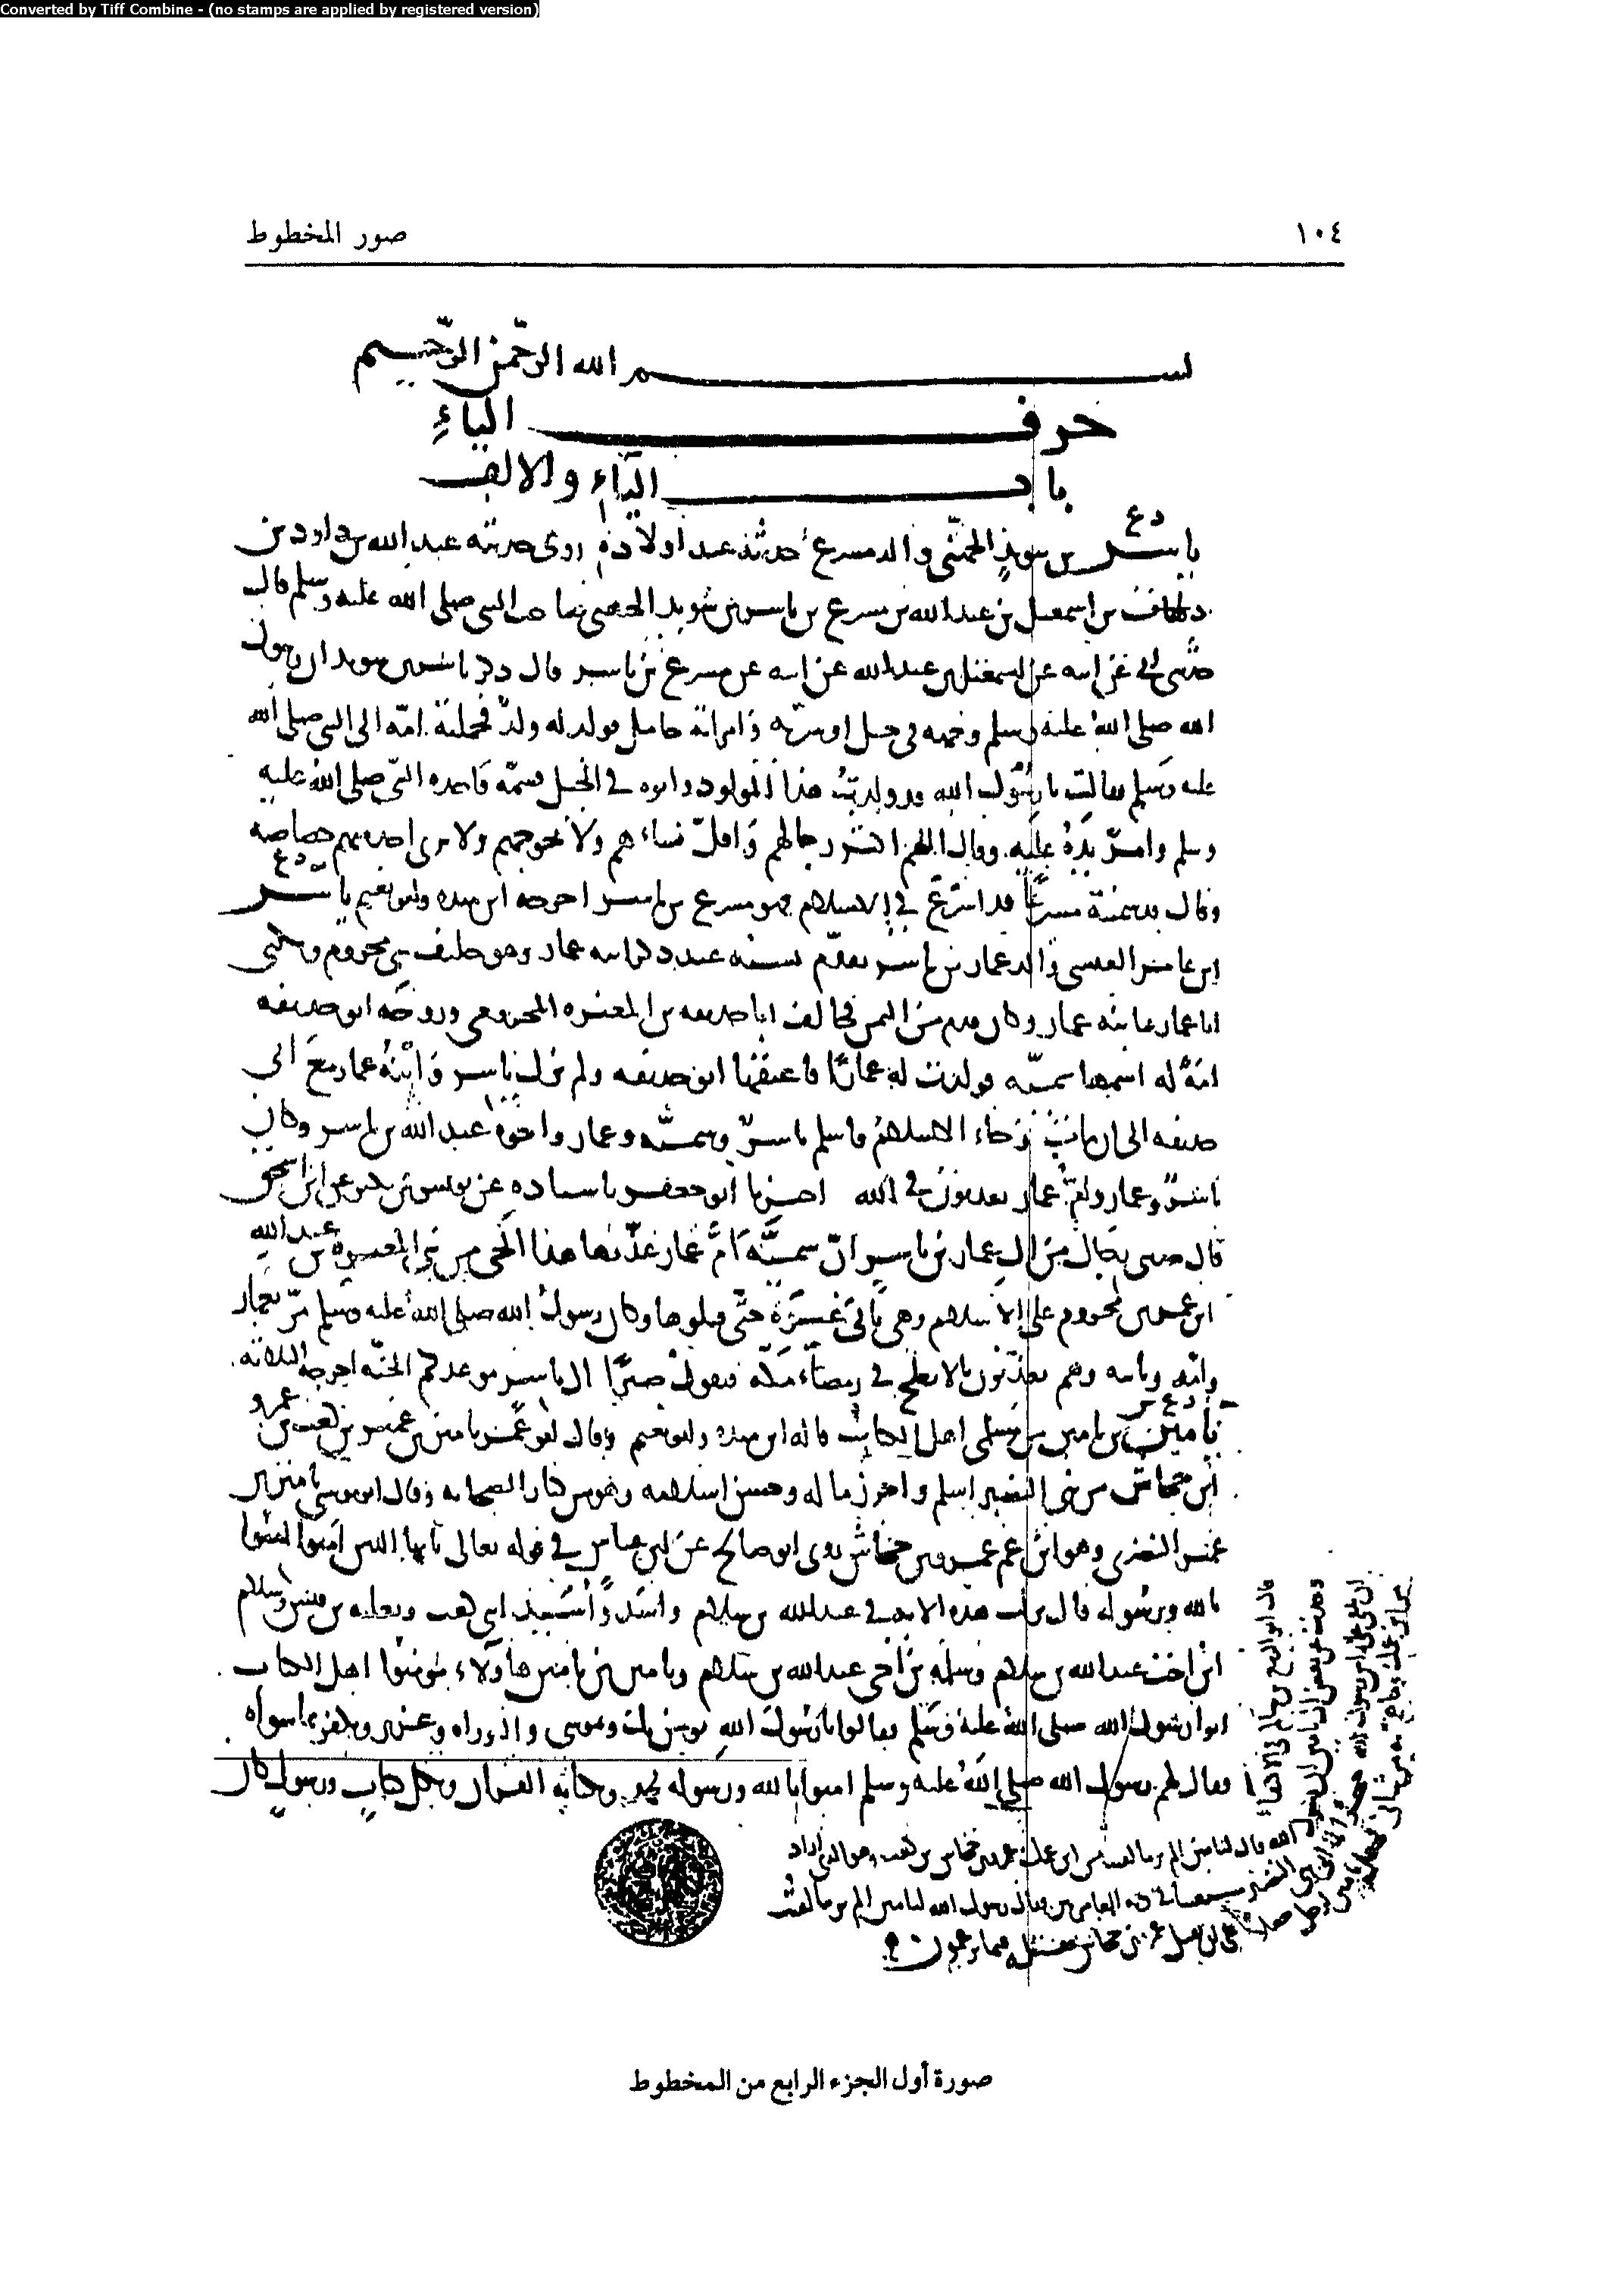 Converted by Tiff Combine - (no stamps are applied by registered version)
١٠٤
صور المخطوط
بسم الله الرحمن الرحيم
حرف الياء
باب الياء والالف
ياسر بن سويد الجهني والد مسرع حديثه عند اولاده روى حديثه عبد الله بن داود بن
دلهاث بن اسمعيل بن عبد الله بن مسرع بن ياسر بن سويد الجهني صاحب النبي صلى الله عليه وسلم قال
حدثني ابي عن ابيه عن اسمعيل بن عبد الله عن ابيه عن مسرع بن ياسر قال ذكر ياسر بن سويد ان رسول
الله صلى الله عليه وسلم وجهه في خيل او سريه وامراته حامل فولد له ولد فحملته امه الى النبي صلى الله
عليه وسلم فقالت يا رسول الله قد ولدت هذا المولود وابوه في الخيل فسمه فاخذه النبي صلى الله عليه
وسلم وامر يده عليه وقال اللهم اكثر رجالهم واقل نساءهم ولا تحوجهم ولا ترى احدا منهم خصاصه
وقال سميته مسرعا قد اسرع في الاسلام فهو مسرع بن ياسر اخرجه ابن منده وابو نعيم ياسر
ابن عامر العنسي والد عمار بن ياسر تقدم نسبه عند ذكر ابنه عمار وهو حليف بني مخزوم ويكنى
ابا عمار بابنه عمار وكان قدم من اليمن فحالف ابا حذيفه بن المغيره المخزومي وزوجه ابو حذيفه
امة له اسمها سميه فولدت له عمارا فاعتقها ابو حذيفه ولم يزل ياسر وابنه عمار مع ابي
حذيفه الى ان مات وجاء الاسلام فاسلم ياسر وسميه وعمار واخوه عبد الله بن ياسر وكان
ياسر وعمار وام عمار يعذبون في الله اخبرنا ابو جعفر باسناده عن يونس بن بكير عن ابن اسحق
قال حدثني رجال من ال عمار بن ياسر ان سميه ام عمار عذبها هذا الحي من بني المغيره بن عبد الله
ابن عمر بن مخزوم على الاسلام وهي تابى غيره حتى قتلوها وكان رسول الله صلى الله عليه وسلم مر بعمار
وامه وابيه وهم يعذبون بالابطح في رمضاء مكه فيقول صبرا ال ياسر موعدكم الجنه اخرجه الثلاثه
يامين بن يامين من مسلمي اهل الكتاب قاله ابن منده وابو نعيم وقال ابو عمر يامين بن عمير بن كعب بن عمرو
ابن جحاش من بني النضير اسلم واحرز ماله وحسن اسلامه وهو من كبار الصحابه وقال ابو موسى يامين بن
عمير النضري وهو ابن عم عمرو بن جحاش روى ابو صالح عن ابن عباس في قوله تعالى يا ايها الذين امنوا امنوا
بالله ورسوله قال نزلت هذه الايه في عبد الله بن سلام واسد واسيد ابني كعب وثعلبه بن قيس وسلام
ابن اخت عبد الله بن سلام وسلمة بن اخي عبد الله بن سلام ويامين بن يامين هاولاء مؤمنوا اهل الكتاب
اتوا رسول الله صلى الله عليه وسلم فقالوا يا رسول الله نومن بك وبموسى والتوراه وعزير ونكفر بما سواه
فقال لهم رسول الله صلى الله عليه وسلم امنوا بالله ورسوله محمد وكتابه القران وبكل كتاب ورسول كان
صورة أول الجزء الرابع من المخطوط